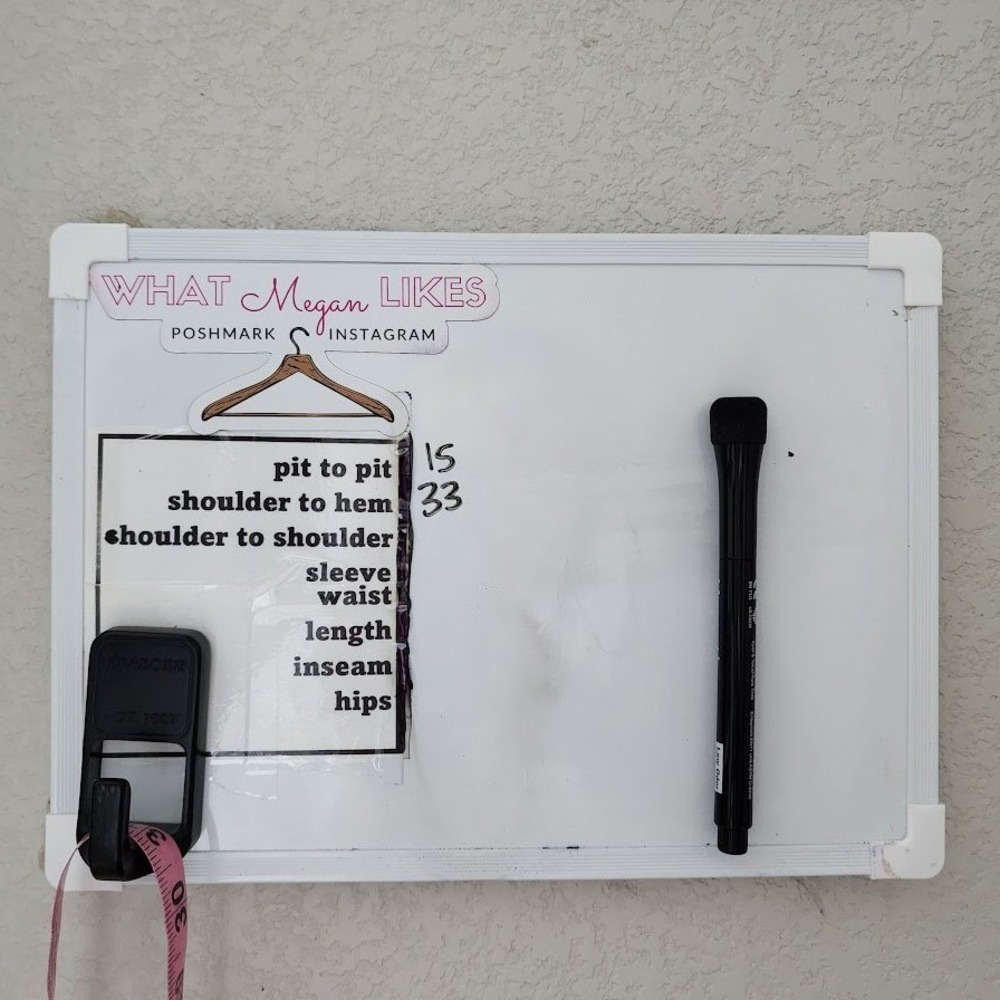 WHAT Megan LIKES
POSHMARK INSTAGRAM
pit to pit 15
shoulder to hem 33
shoulder to shoulder
sleeve
waist
length
inseam
hips
30
Low Odor